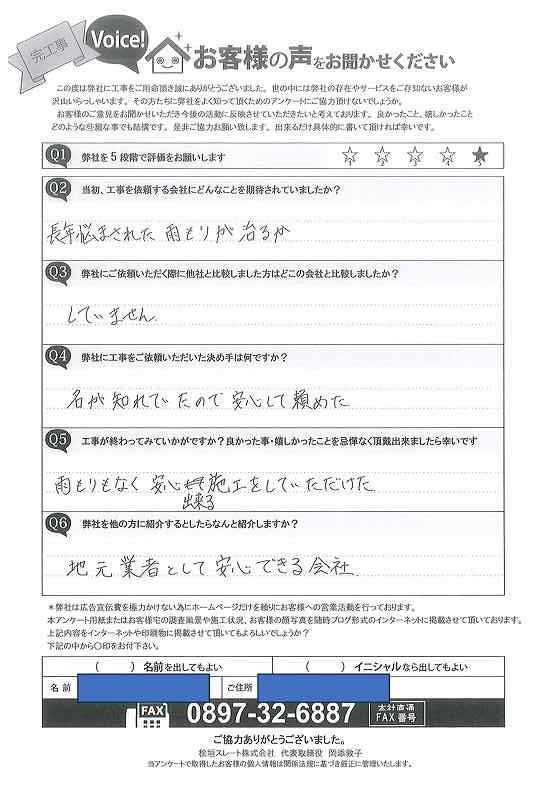 完工事
Voice!
お客様の声をお聞かせください
この度は弊社に工事をご用命頂き誠にありがとうございました。世の中には弊社の存在やサービスをご存知ないお客様が
沢山いらっしゃいます。その方たちに弊社をよく知って頂くためのアンケートにご協力頂けないでしょうか。
お客様のご意見をお聞かせいただき今後の活動に反映させていただきたいと考えております。良かったこと、嬉しかったこと
どのような些細な事でも結構です。是非ご協力お願い致します。出来るだけ具体的に書いて頂ければ幸いです。
Q1 弊社を5段階で評価をお願いします
1 2 3 4 5
Q2 当初、工事を依頼する会社にどんなことを期待されていましたか?
長年悩まされた雨もりが治るか
Q3 弊社にご依頼いただく際に他社と比較しました方はどこの会社と比較しましたか?
していません
Q4 弊社に工事をご依頼いただいた決め手は何ですか?
名が知れていたので安心して頼めた
Q5 工事が終わってみていかがですか?良かった事・嬉しかったことを忌憚なく頂戴出来ましたら幸いです
雨もりもなく 安心 施工をしていただけた
出来る
Q6 弊社を他の方に紹介するとしたらなんと紹介しますか?
地元業者として安心できる会社
*弊社は広告宣伝費を極力かけない為にホームページだけを頼りにお客様への営業活動を行っております。
本アンケート用紙またはお客様宅の調査風景や施工状況、お客様の顔写真を随時ブログ形式のインターネットに掲載させて頂いております。
上記内容をインターネットや印刷物に掲載させて頂いてもよろしいでしょうか?
下記の中から〇印をお付下さい。
( ) 名前を出してもよい ( ) イニシャルなら出してもよい
名前 ご住所
FAX 0897-32-6887 本社直通 FAX番号
ご協力ありがとうございました。
桧垣スレート株式会社 代表取締役 岡添敦子
当アンケートで取得したお客様の個人情報は関係法規に基づき厳正に管理いたします。